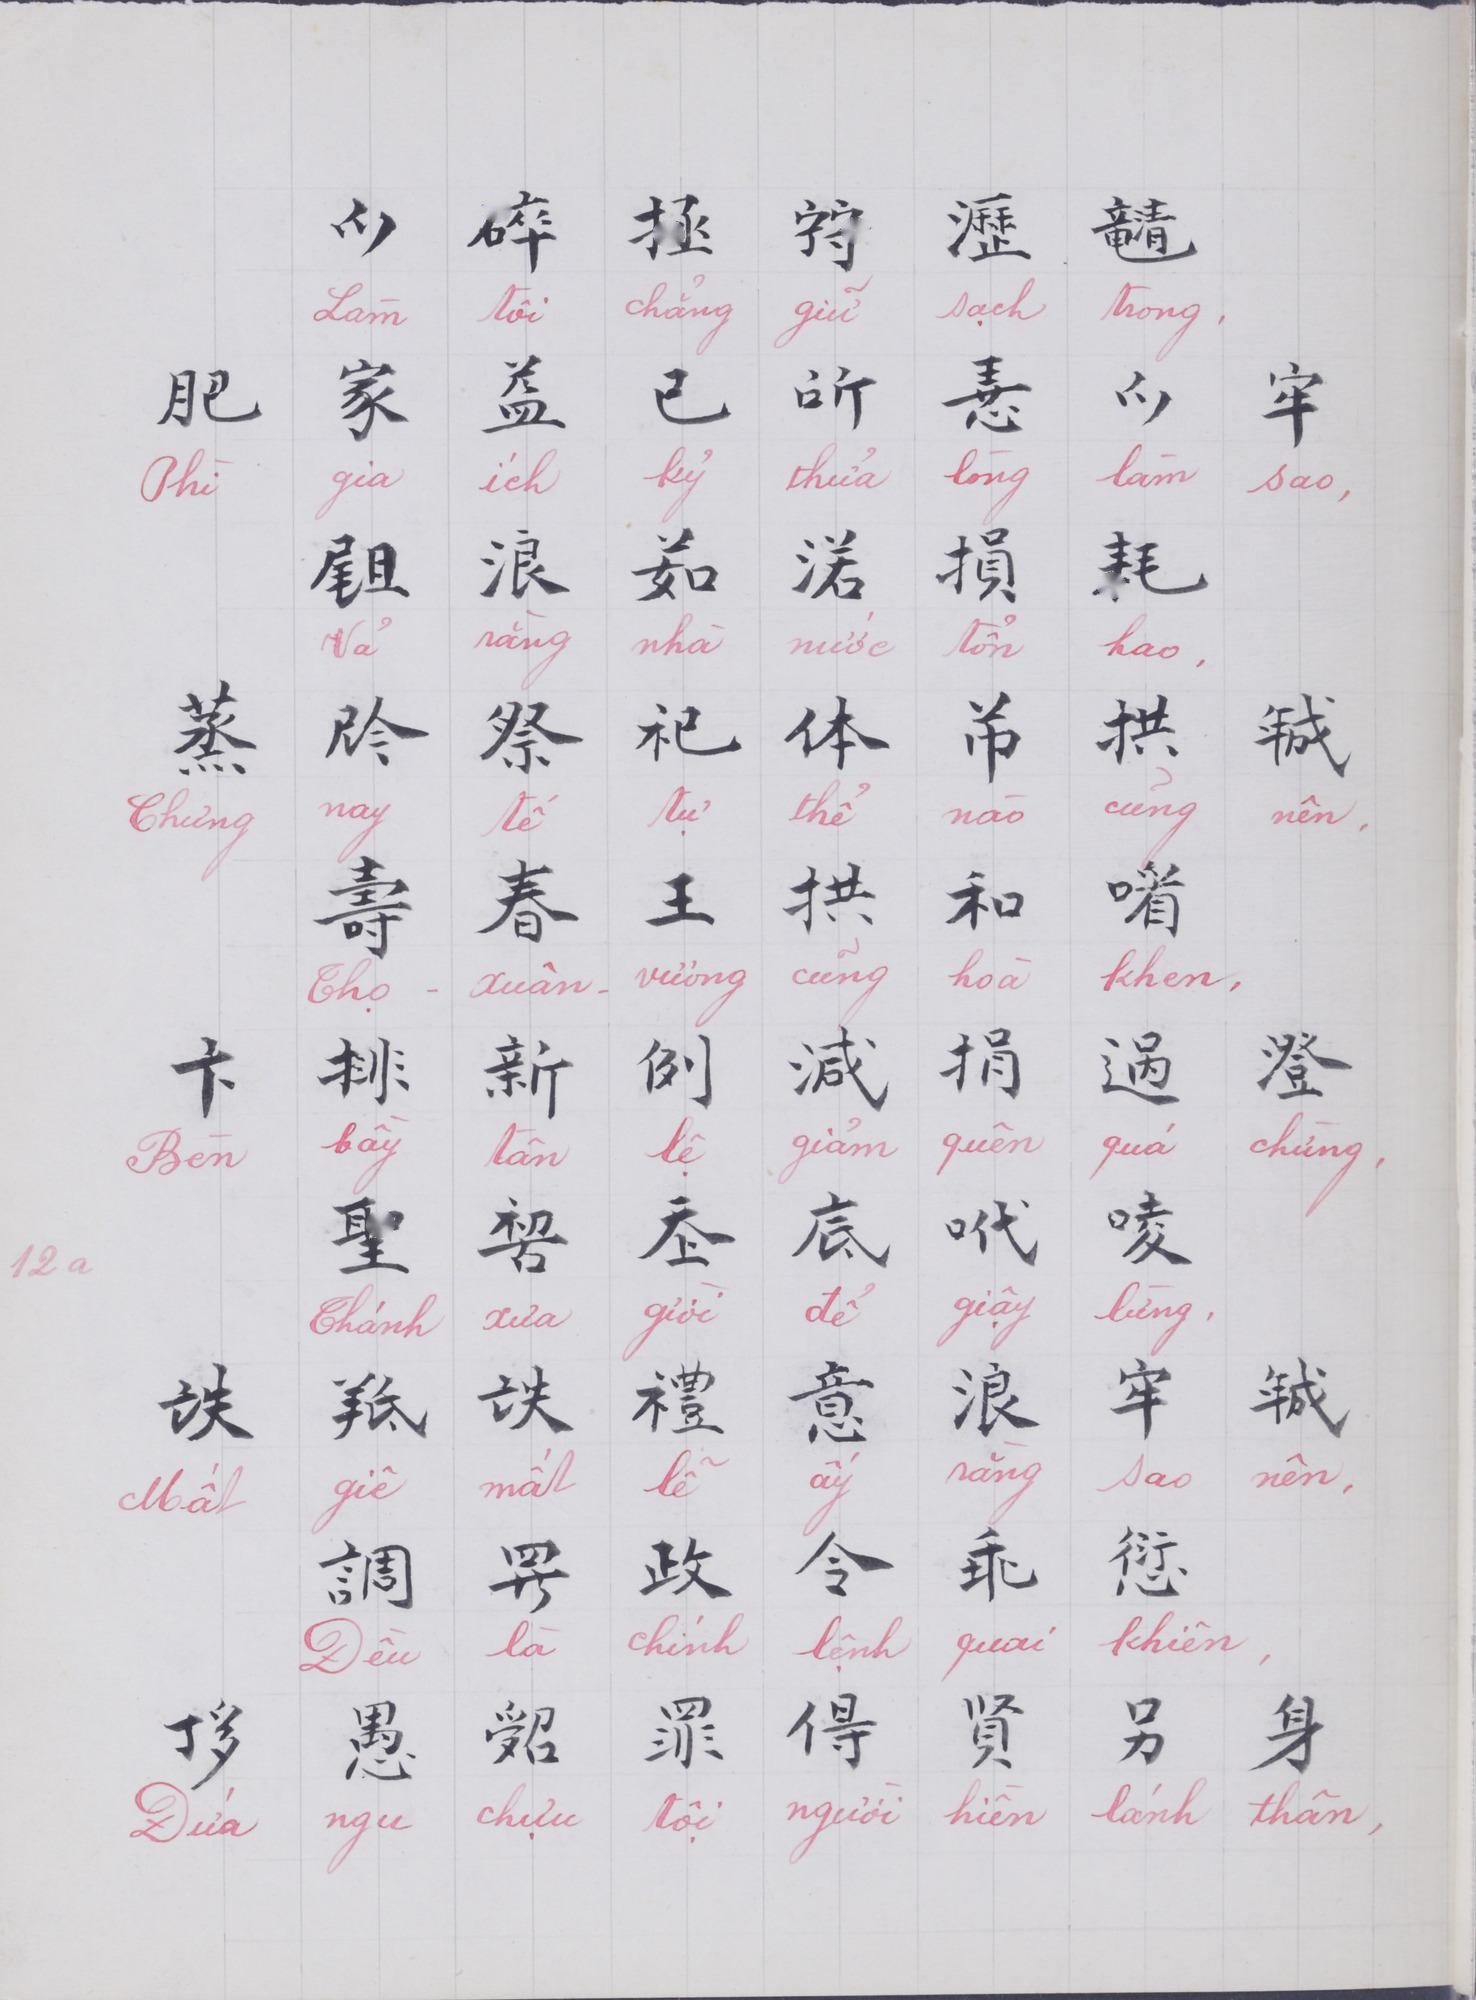 𫜵碎拯𡨹瀝𤄯
Làm tôi chẳng giữ sạch trong,
肥家益已所𢚸𫜵牢
Phì gia ích kỷ thửa lòng làm sao,
浪茹渃損耗
Vả rằng nhà nước tổn hao,
蒸祭祀体拱𢧚
Chưng nay tế tự thể nào củng nên,
壽春王拱和𠸦
Thọ - xuân - vương cũng hoà khen,
卞排新例減捐過澄
Bèn bầy tân lệ giảm quên quá chừng,
聖𠸗𡗶底𠰺唛
12a
Thánh xưa giời để giậy lừng,
𫗄羝𫗄禮意浪牢𢧚
Mất giê mất lễ ấy rằng sao nên,
調𱺵政令乖愆
Đều là chính lệnh quai khiên,
愚罪得賢另身
Đứa ngu chựu tội người hiền lánh thân,